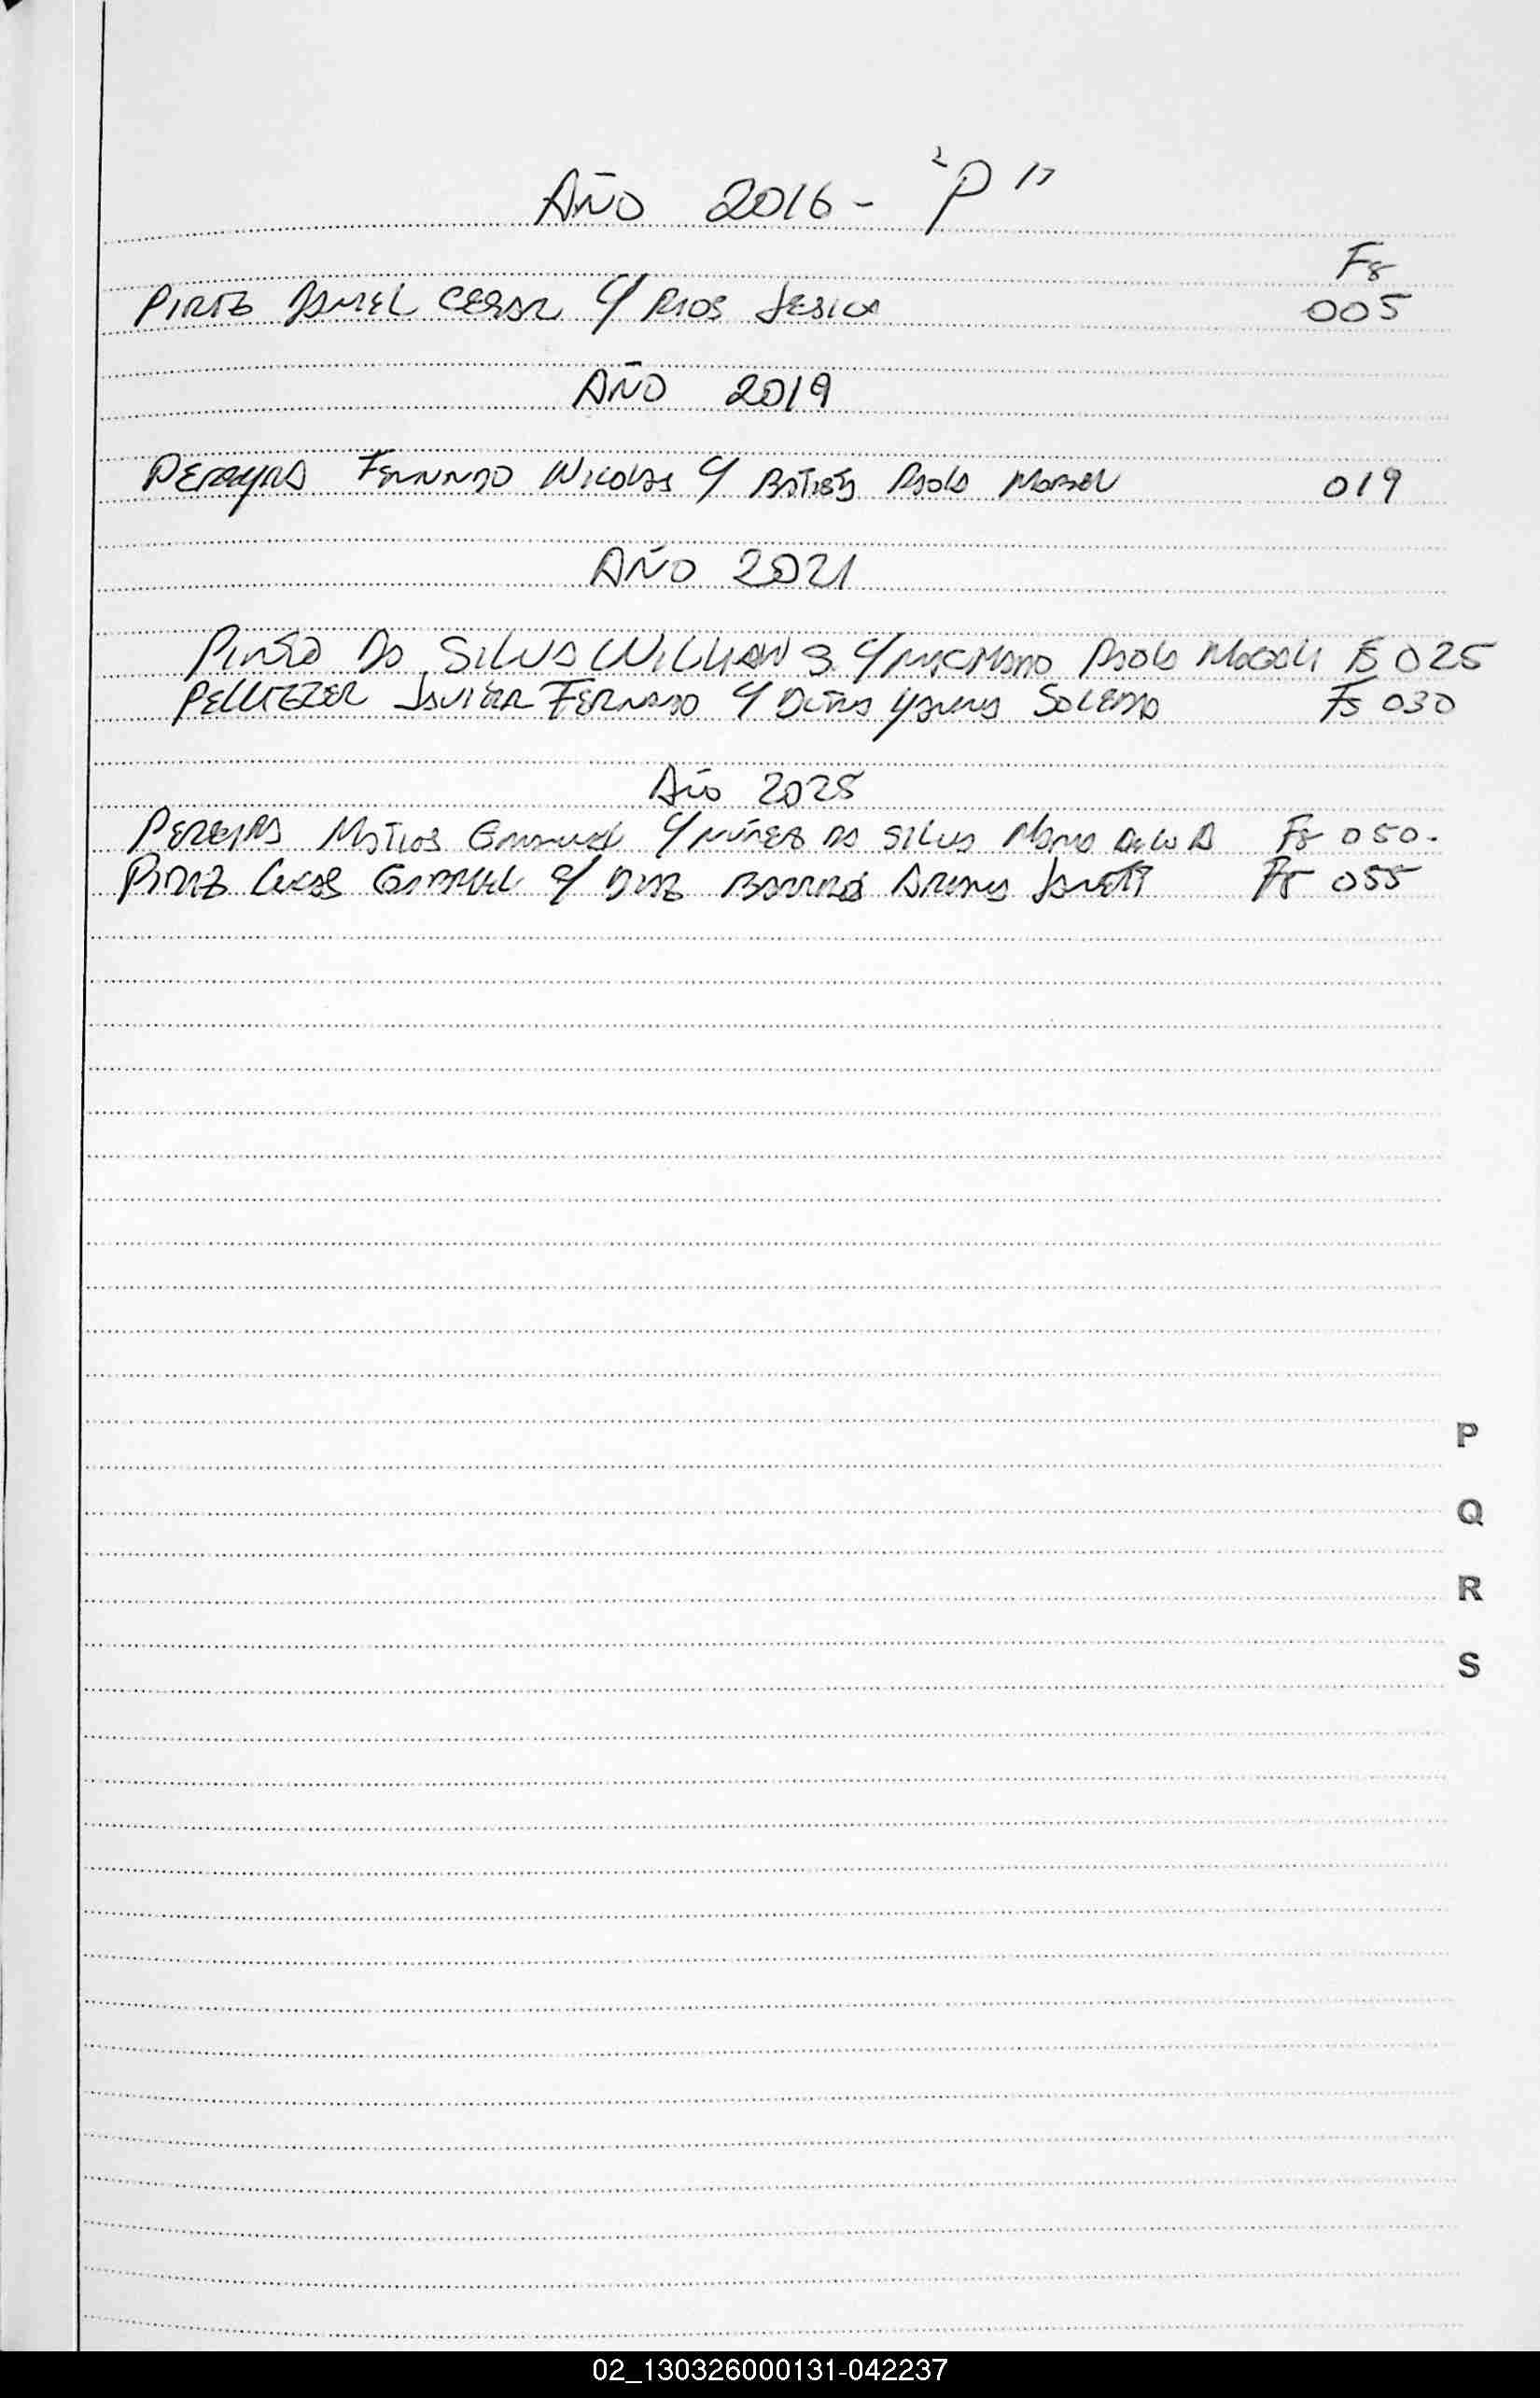 AÑO 2016 - "P"
Fs
PIREZ DANIEL CESAR C/ RIOS JESICA 005
AÑO 2019
PEREYRA FERNANDO NICOLAS C/ BATISTA PAOLA MABEL 019
AÑO 2021
PINTO DA SILVA WILLIAN S. C/ PAOLA MAGALI Fs 025
PELLITZER JAVIER FERNANDO C/ YANINA SOLEDAD Fs 030
Año 2025
PEREYRA MATIAS EMANUEL C/ NÚÑEZ DA SILVA MARIA DE LOS A Fs 050.
LUCAS GABRIEL C/ DIAZ BARRIOS JANETT Fs 055
P
Q
R
S
02_130326000131-042237